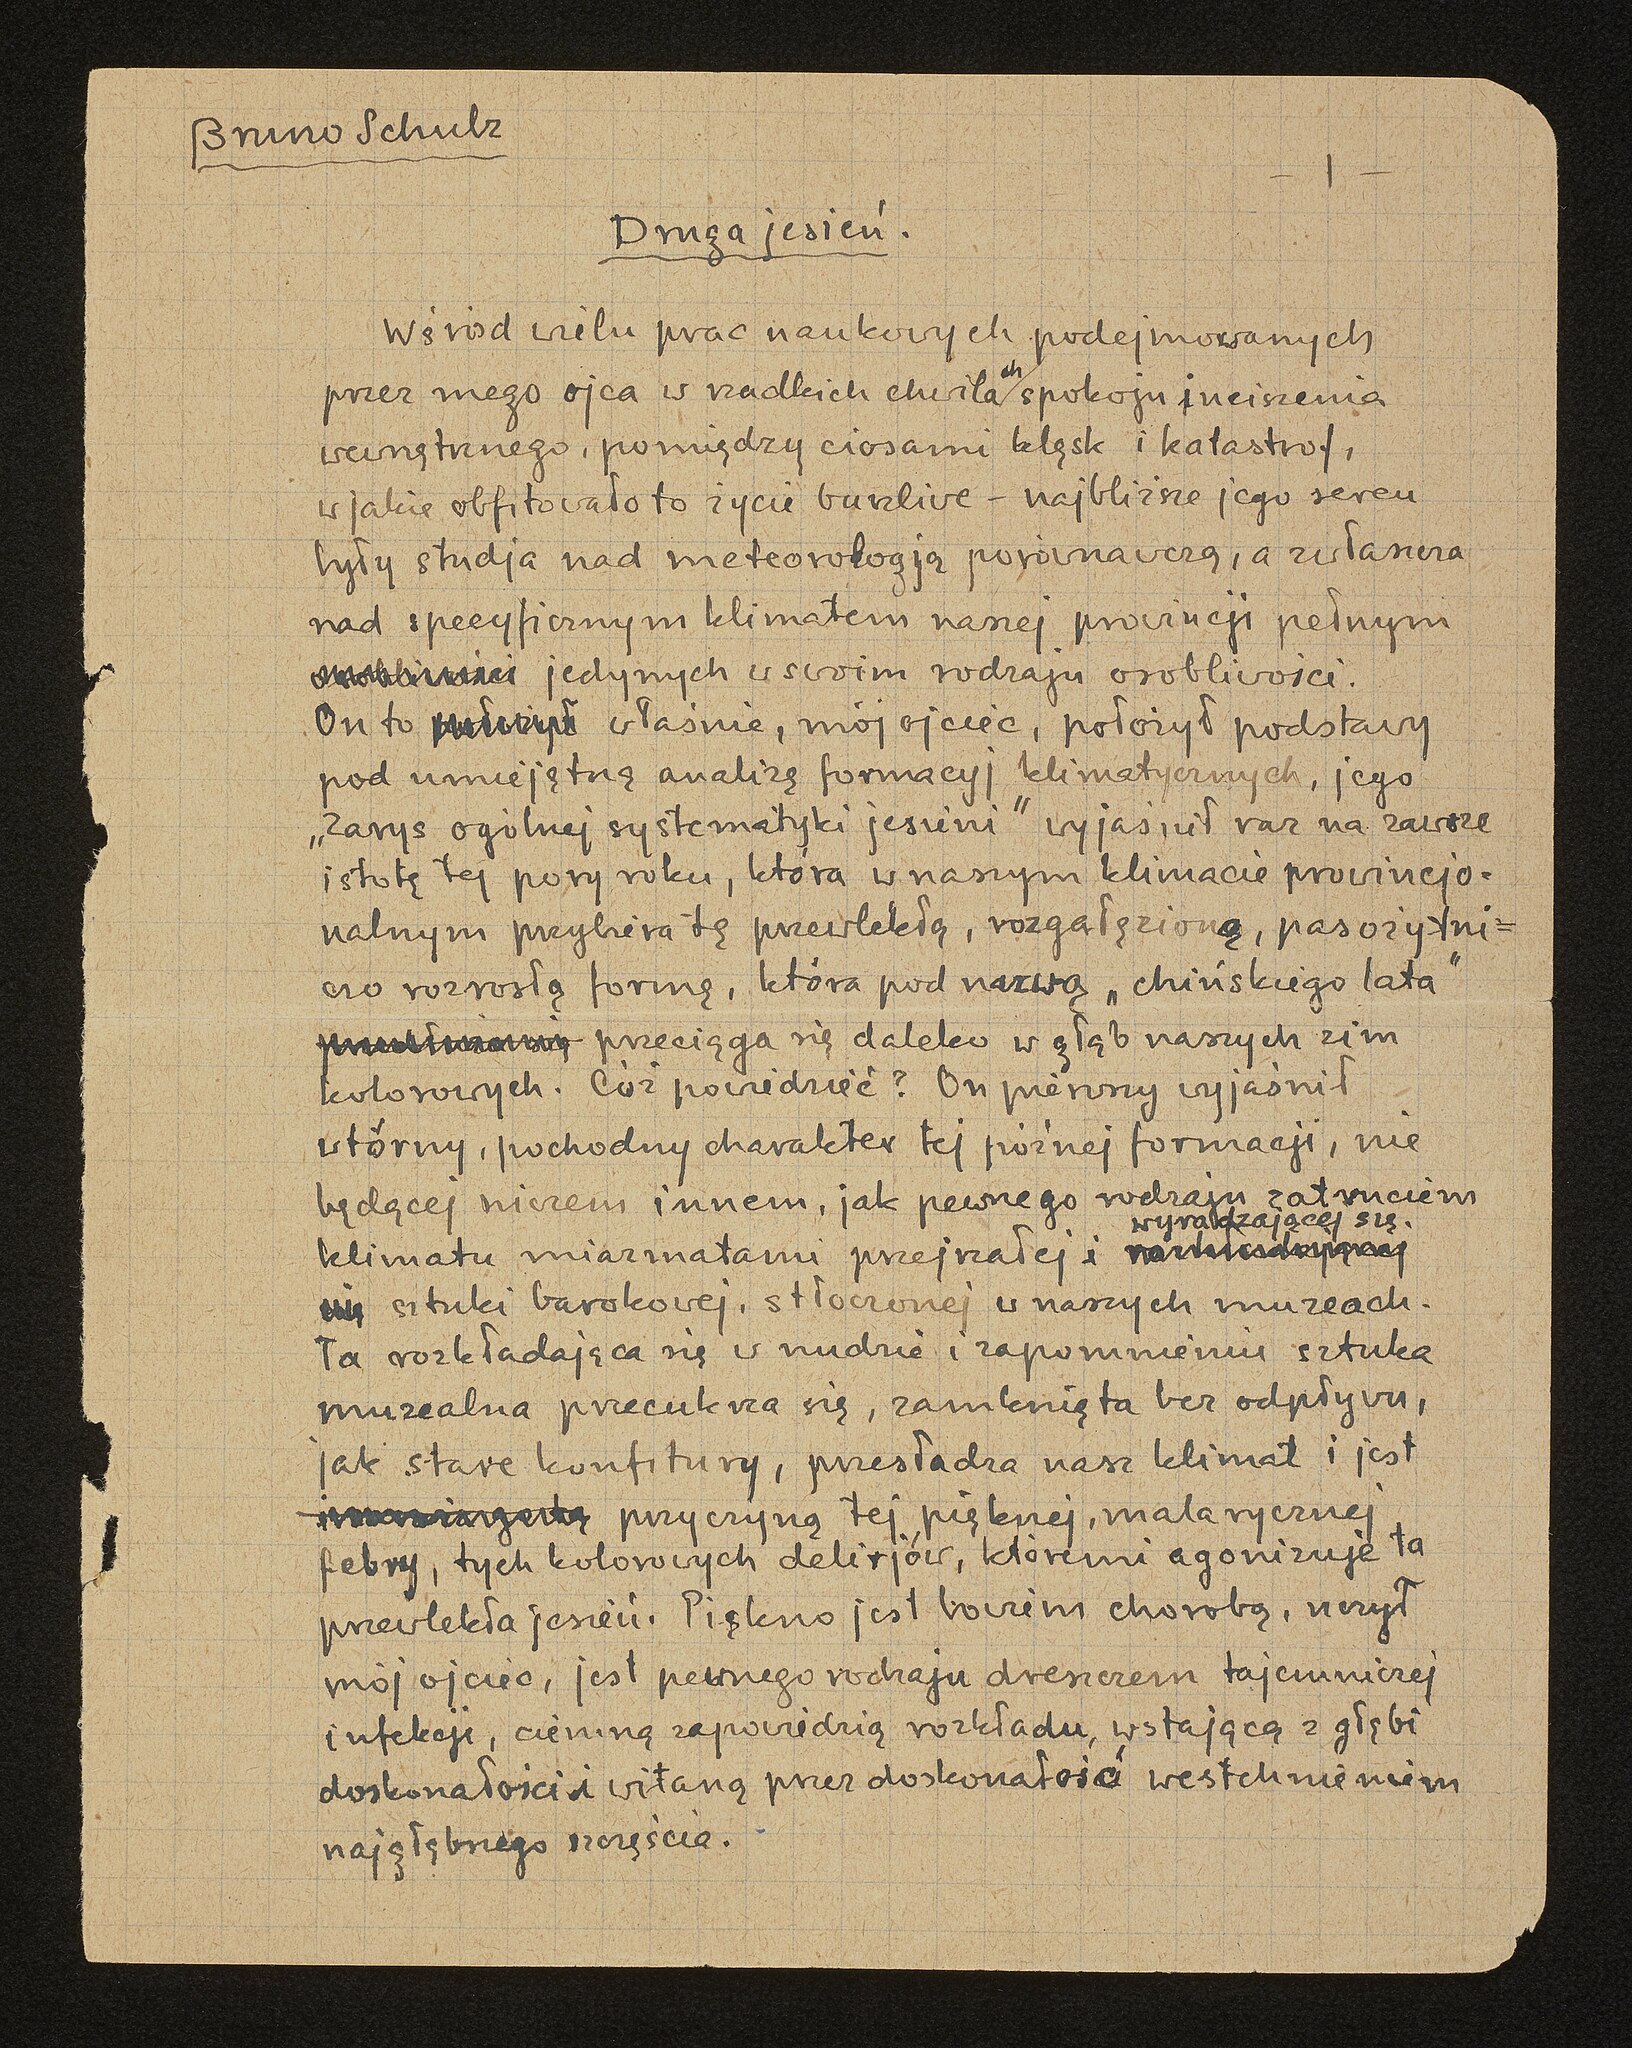 Bruno Schulz
– 1 –
Druga jesień.
Wśród wielu prac naukowych podejmowanych
przez mego ojca w rzadkich chwilach spokoju i uciszenia
wewnętrznego, pomiędzy ciosami klęsk i katastrof,
w jakie obfitowało to życie burzliwe – najbliższe jego sercu
były studja nad meteorologją porównawczą, a zwłaszcza
nad specyficznym klimatem naszej prowincji pełnym
osobliwości jedynych w swoim rodzaju osobliwości.
On to położył właśnie, mój ojciec, położył podstawy
pod umiejętną analizę formacyj klimatycznych, jego
„Zarys ogólnej systematyki jesieni" wyjaśnił raz na zawsze
istotę tej pory roku, która w naszym klimacie prowincjo-
nalnym przybiera tę przewlekłą, rozgałęzioną, pasorzytni=
czo rozrosłą formę, która pod nazwą „chińskiego lata"
przeciąga się daleko w głąb naszych zim
kolorowych. Cóż powiedzieć? On pierwszy wyjaśnił
wtórny, pochodny charakter tej późnej formacji, nie
będącej niczem innem, jak pewnego rodzaju zatruciem
klimatu miazmatami przejrzałej i wyradzającej się.
się sztuki barokowej, stłoczonej w naszych muzeach.
Ta rozkładająca się w nudzie i zapomnieniu sztuka
muzealna przecukrza się, zamknięta bez odpływu,
jak stare konfitury, przesładza nasz klimat i jest
przyczyną tej pięknej, malarycznej
febry, tych kolorowych delirjów, któremi agonizuje ta
przewlekła jesień. Piękno jest bowiem chorobą, uczył
mój ojciec, jest pewnego rodzaju dreszczem tajemniczej
infekcji, ciemną zapowiedzią rozkładu, wstającą z głębi
doskonałości i witaną przez doskonałość westchnieniem
najgłębszego szczęścia.